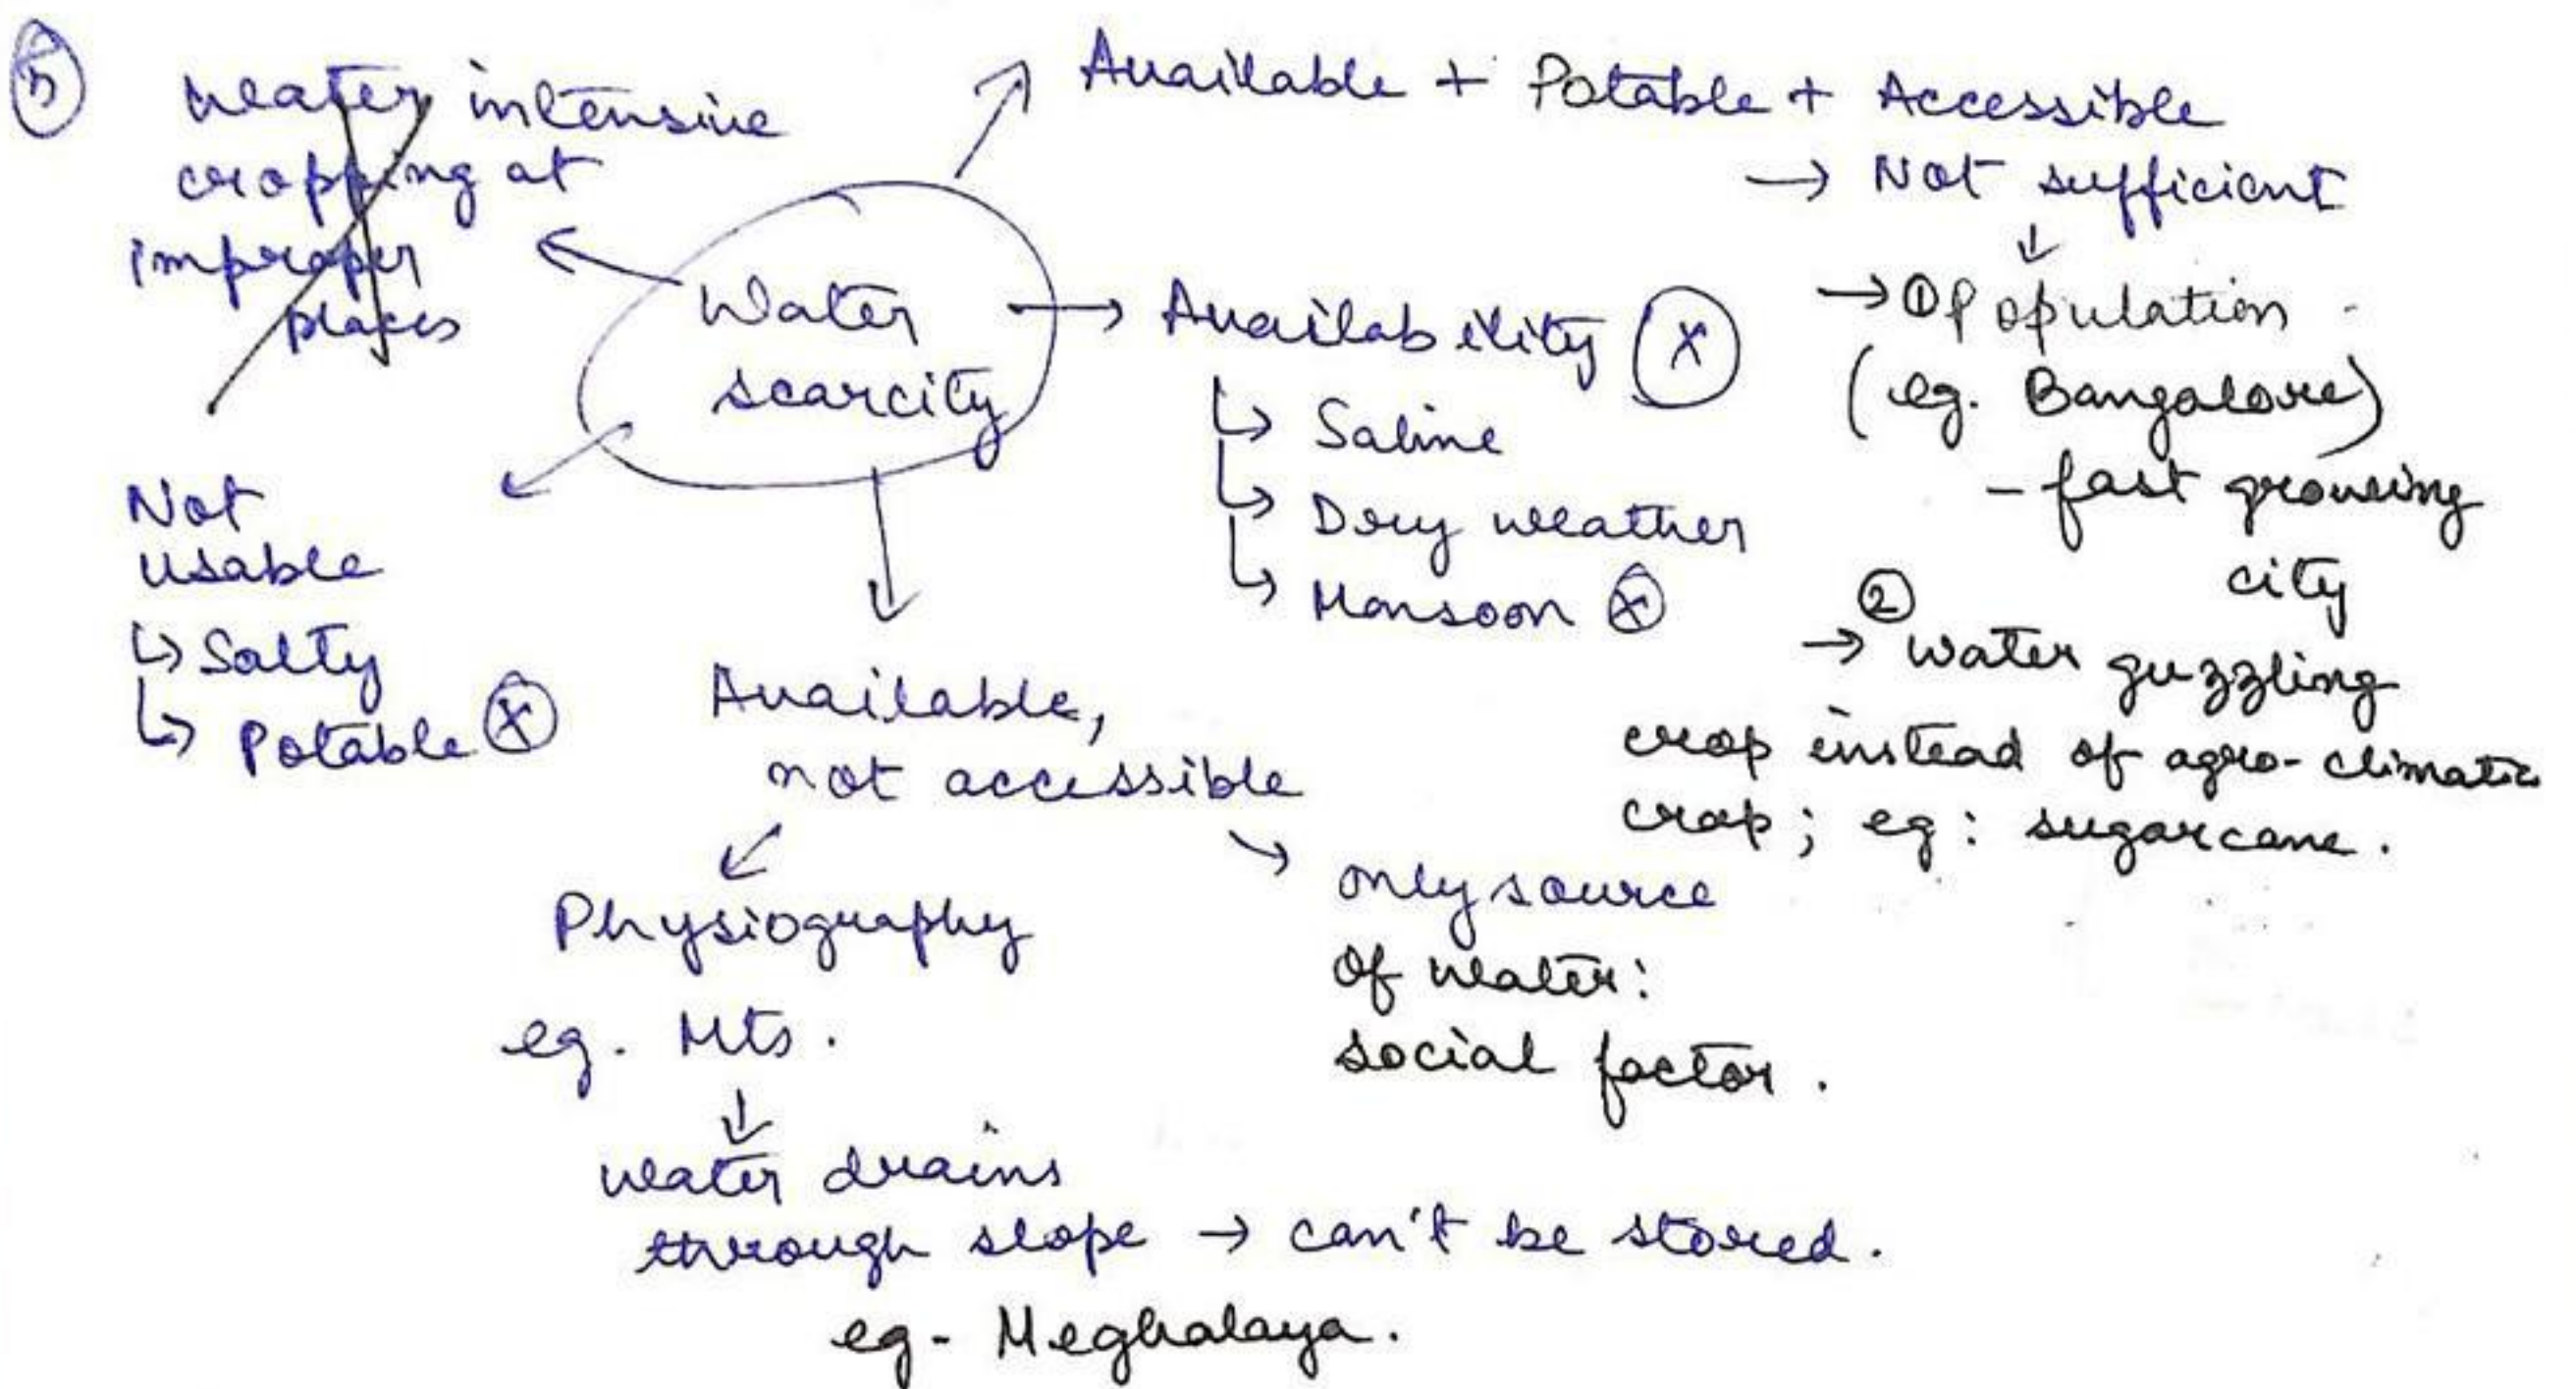 Water intensive
cropping at
improper
places
Available + Potable + Accessible
→ Not sufficient
↓
→ ① Population
(eg. Bangalore)
- fast growing
city
→ ② Water guzzling
crop instead of agro-climatic
crop; eg: sugarcane.
Water
scarcity
→ Availability ⓧ
↳ Saline
↳ Dry weather
↳ Monsoon ⓧ
Not
usable
↳ Salty
↳ Potable ⓧ
Available,
not accessible
Physiography
eg. Mts.
↓
water drains
through slope → can't be stored.
eg - Meghalaya.
only source
of water:
social factor.